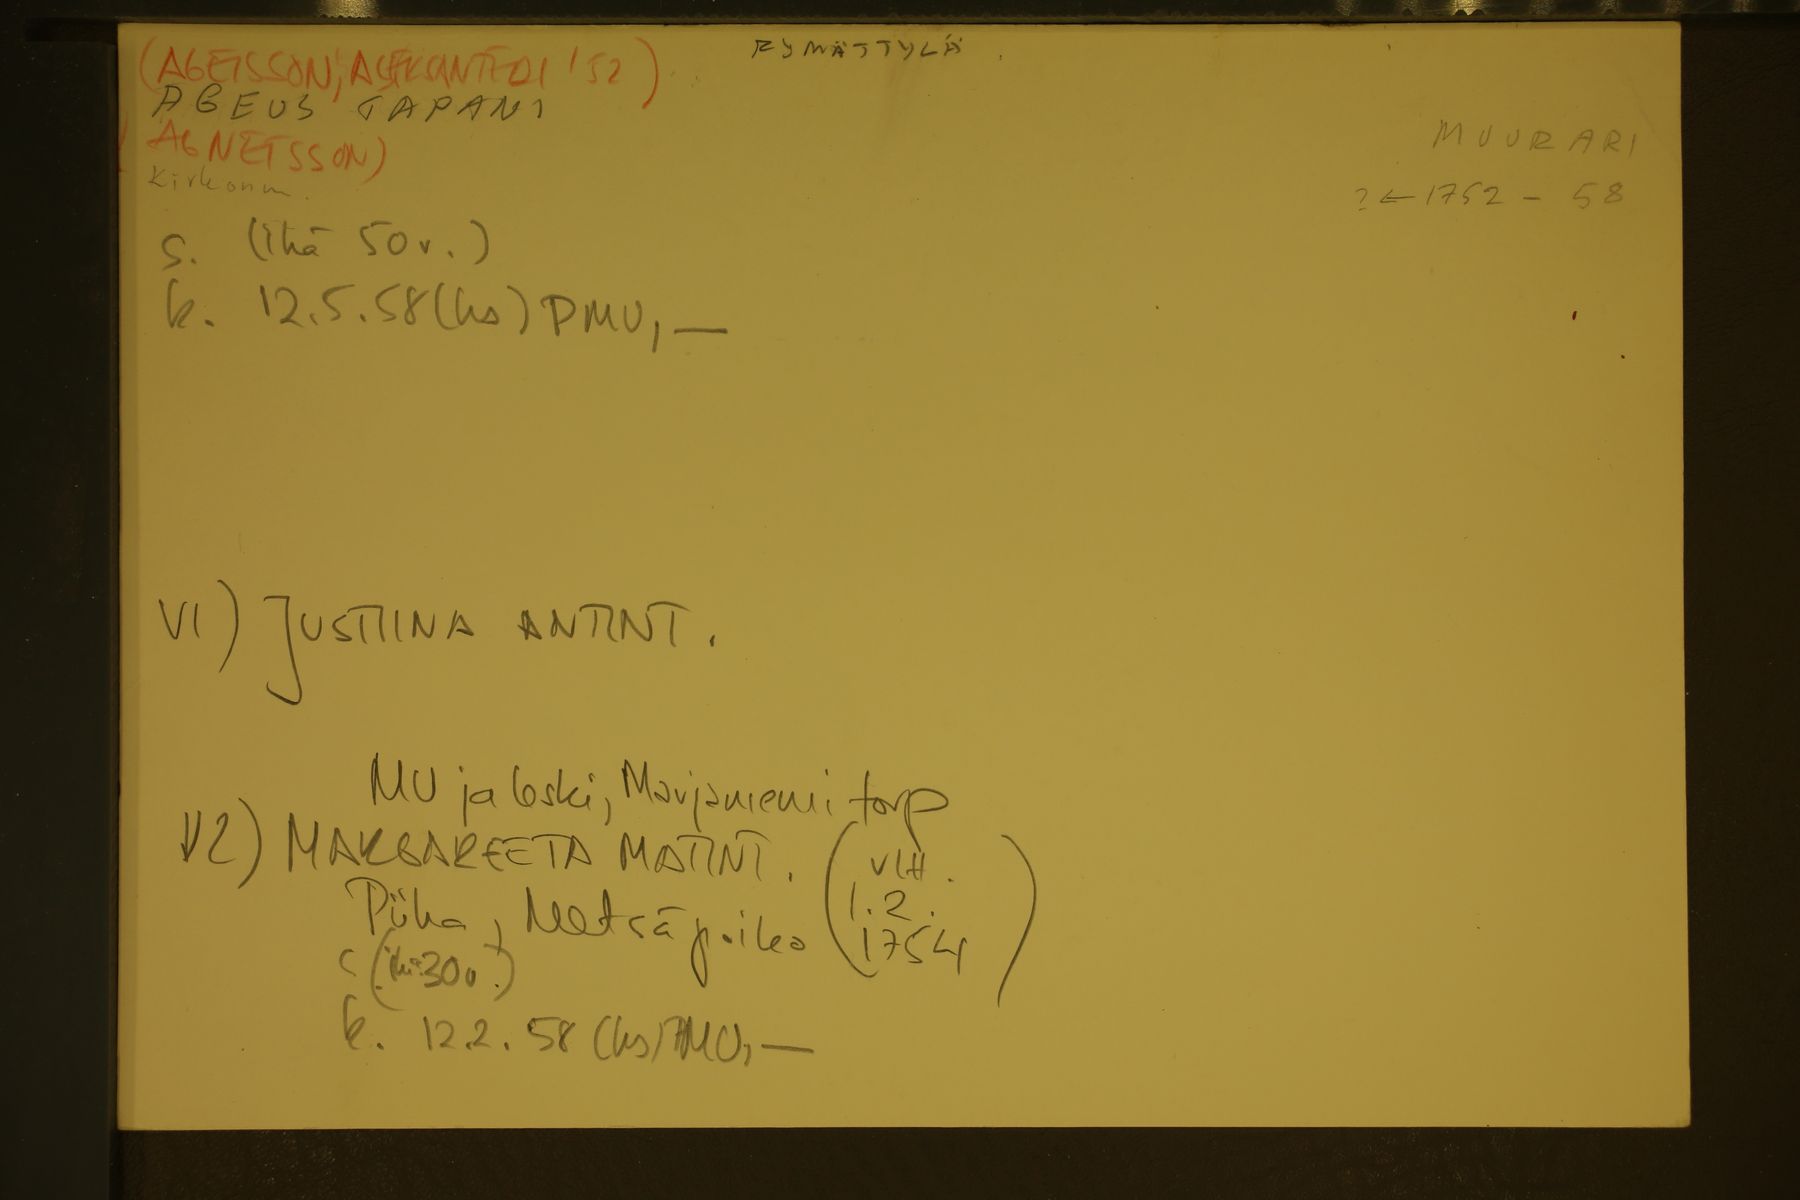 RYMÄTTYLÄ.
(AGETSSON, '52)
AGEUS TAPANI
(AGNETSSON)
MUURARI
Kirkonm.
? ← 1752 - 58
s. (ikä 50 v.)
k. 12.5.58 (hs) PMU, —
V1) JUSTIINA ANTINT.
MU ja leski, Marjaniemi torp
V2) MARGAREETA MATINT. (VIH. 1.2. 1754)
Piika,
s (ikä 30 v.)
k. 12.2.58 (hs) PMU, —